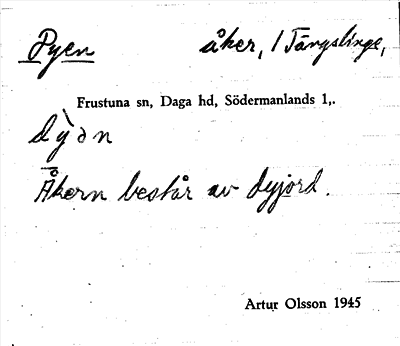 Dyen åker, / Tängslinge,
Frustuna sn, Daga hd, Södermanlands l,.
dỳən
Åkern består av dyjord.
Artur Olsson 1945